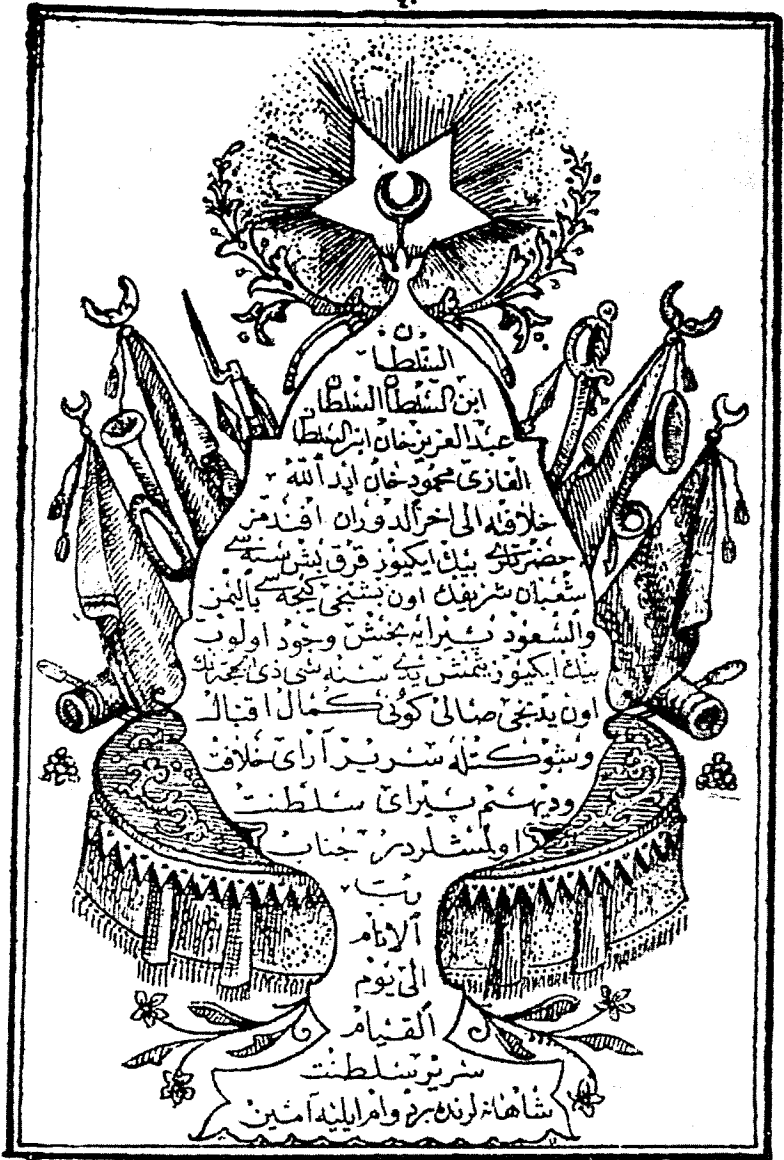 ٤٠
السلطان
ابن السلطان السلطان
عبد العزيز خان ابن السلطان
الغازى محمود خان ايد الله
خلافته الى اخر الدوران افندمز
حضرتلرى بيك ايكيوز قرق بش سنه سى
شعبان شريفك اون بشنجى كيجه سى باليمن
والسعود پيرايه بخش وجود اولوب
بيك ايكيوز يتمش يدى سنه سى ذى الحجه نك
اون يدنجى صالى كونى كمال اقبال
وشوكتله سرير آراى خلافت
وديهيم پيراى سلطنت
اولمشلردر جناب
رب
الانام
الى يوم
القيام
سرير سلطنت
شاهانه لرنده بردوام ايليه آمين